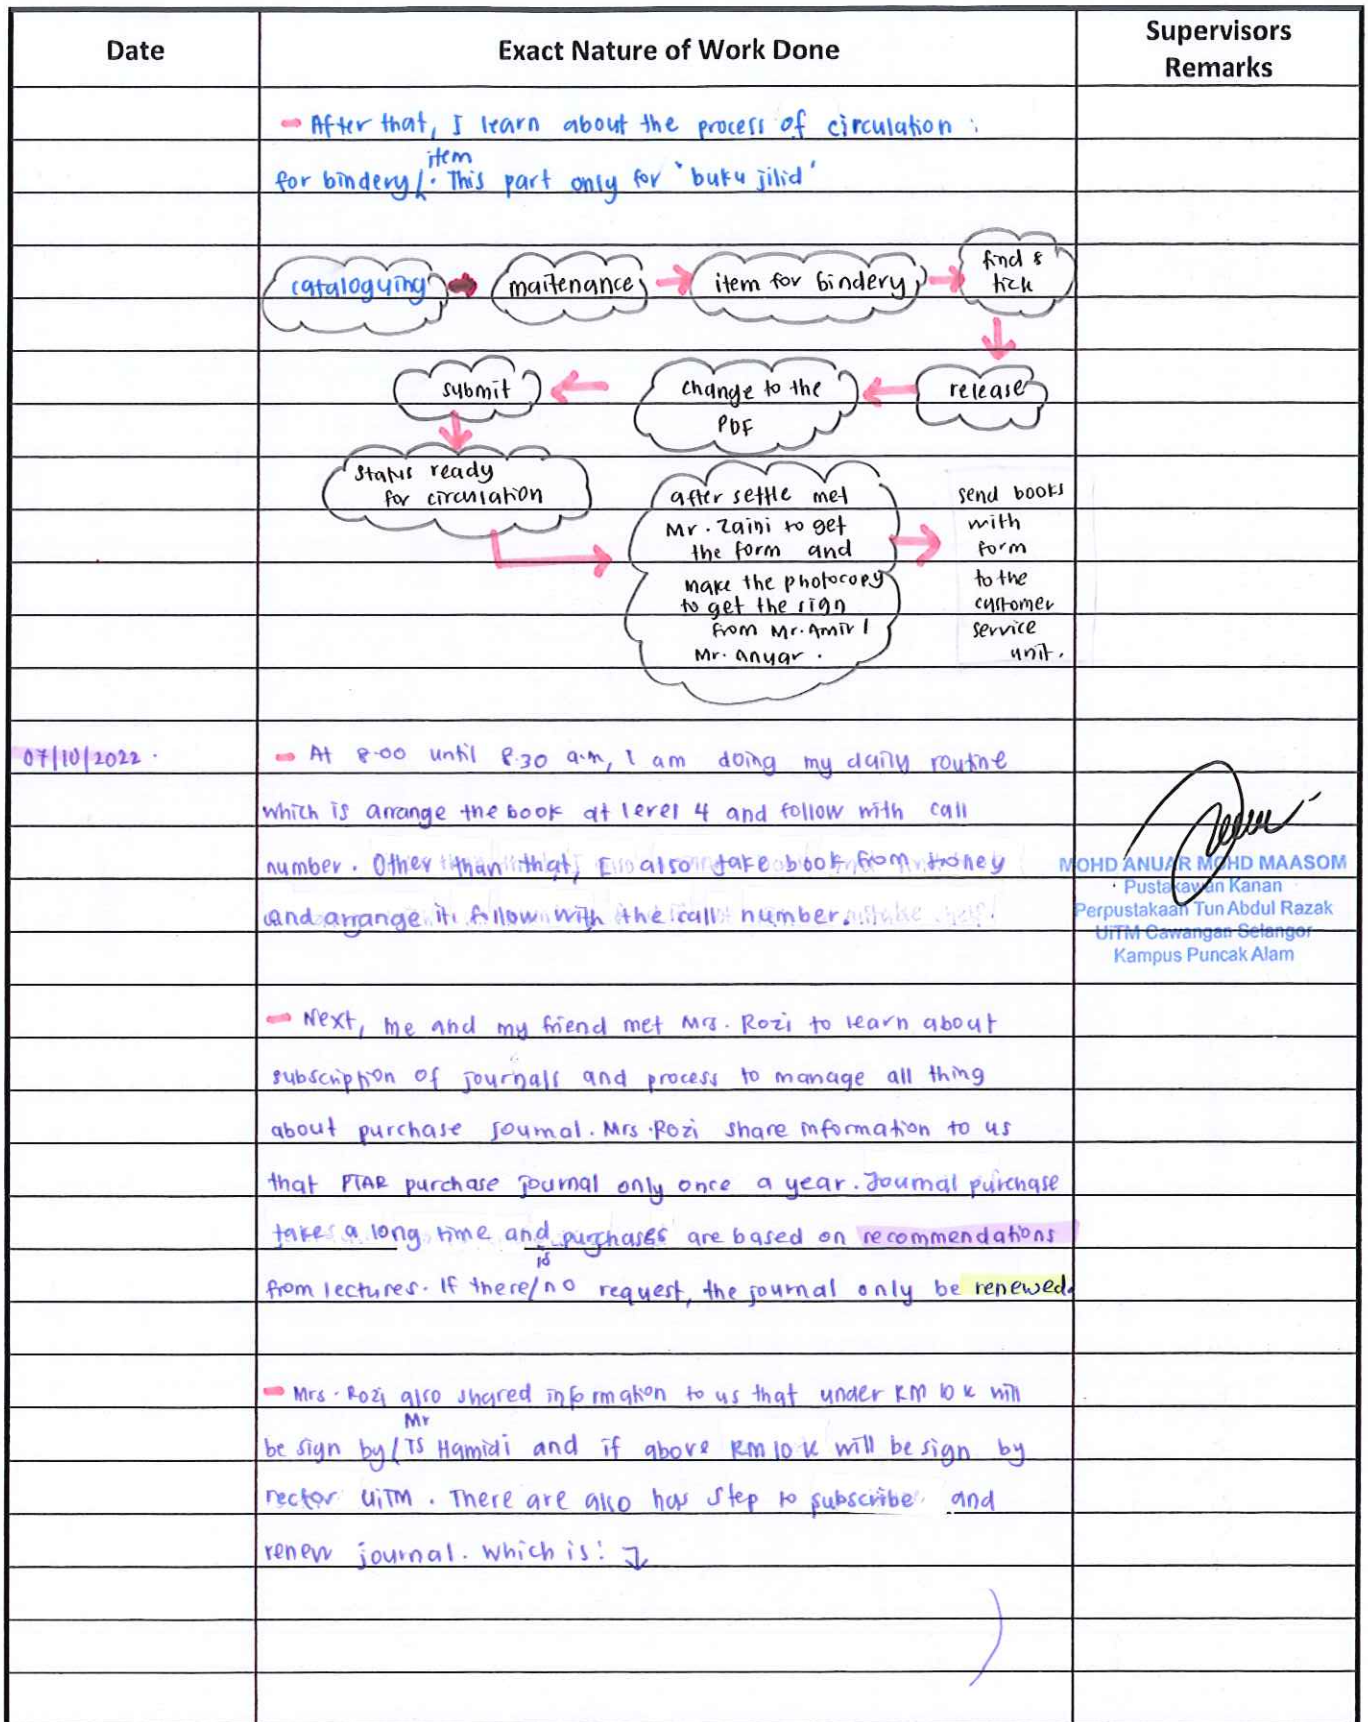 Date
Exact Nature of Work Done
Supervisors
Remarks
- After that, I learn about the process of circulation :
for bindery / item . This part only for 'buku jilid'
cataloguing
maitenance
item for bindery
find &
tick
release
change to the
PDF
submit
status ready
for circulation
after settle met
Mr. Zaini to get
the form and
make the photocopy
to get the sign
from Mr. Amir /
Mr. anuar .
send books
with
form
to the
customer
service
unit.
07/10/2022 .
- At 8.00 until 8.30 a.m, I am doing my daily routine
which is arrange the book at level 4 and follow with call
number. Other than that, I also take book from troney
and arrange it follow with the call number.
MOHD ANUAR MOHD MAASOM
Pustakawan Kanan
Perpustakaan Tun Abdul Razak
UiTM Cawangan Selangor
Kampus Puncak Alam
- Next, me and my friend met Mrs. Rozi to learn about
subscription of journals and process to manage all thing
about purchase journal. Mrs. Rozi share information to us
that PTAR purchase journal only once a year. Journal purchase
takes a long time and purchases are based on recommendations
from lectures. If there / is no request, the journal only be renewed.
- Mrs. Rozi also shared information to us that under RM 10 K will
be sign by / Mr TS Hamidi and if above RM 10 K will be sign by
rector UiTM . There are also has step to subscribe and
renew journal. which is : ↓